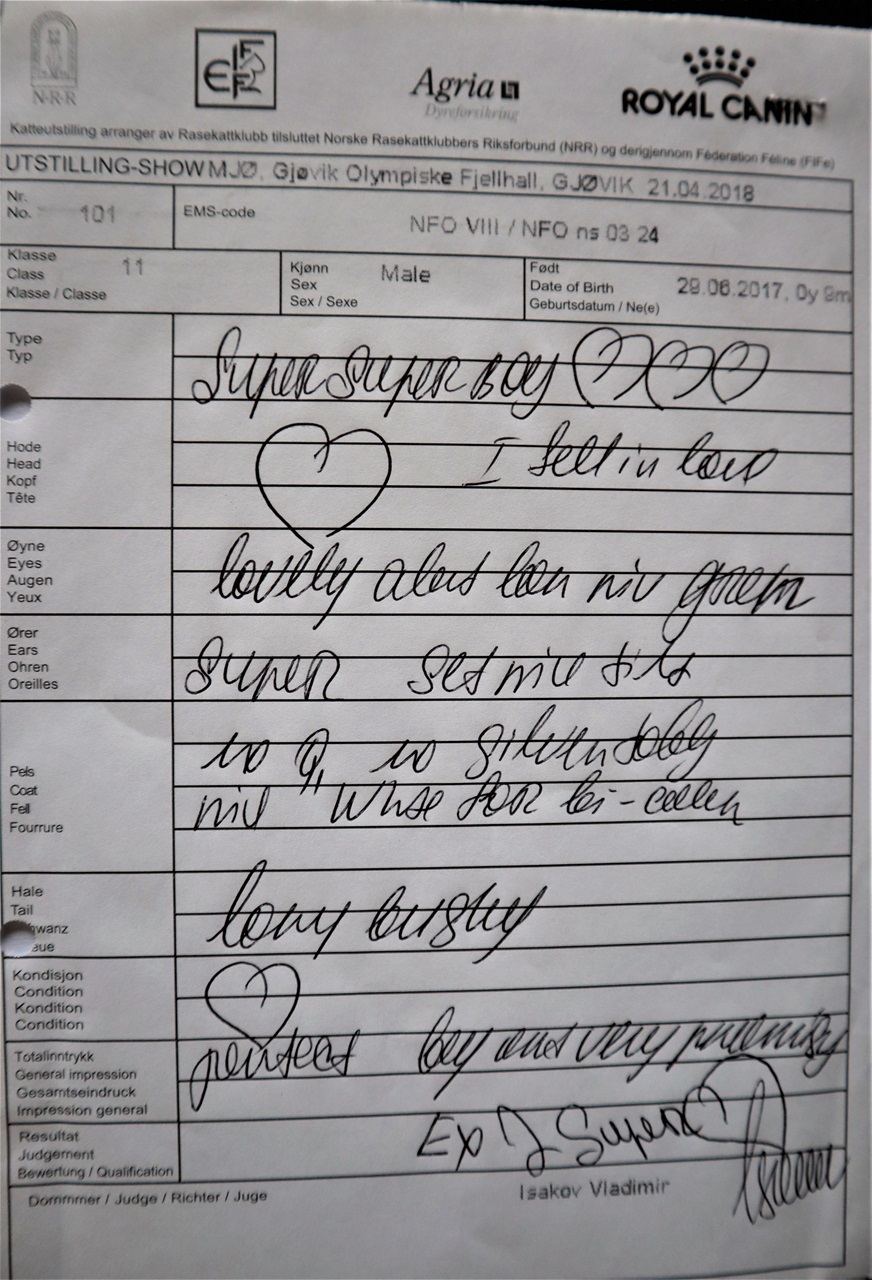 N·R·R
FIFe
Agria
Dyreforsikring
ROYAL CANIN
Katteutstilling arranger av Rasekattklubb tilsluttet Norske Rasekattklubbers Riksforbund (NRR) og derigjennom Féderation Féline (FIFe)
UTSTILLING-SHOW MJØ, Gjøvik Olympiske Fjellhall, GJØVIK 21.04.2018
Nr.
No. 101
EMS-code
NFO VIII / NFO ns 03 24
Klasse
Class 11
Klasse / Classe
Kjønn
Sex Male
Sex / Sexe
Født
Date of Birth 29.06.2017, 0y 9m
Geburtsdatum / Ne(e)
Type
Typ
Super Super boy
Hode
Head
Kopf
Tête
I fell in love
Øyne
Eyes
Augen
Yeux
lovely green
Ører
Ears
Ohren
Oreilles
Super set nice
Pels
Coat
Fell
Fourrure
no silver tabby
for bi-
Hale
Tail
long bushy
Kondisjon
Condition
Kondition
Condition
Totalinntrykk
General impression
Gesamtseindruck
Impression general
perfect boy and very
Resultat
Judgement
Bewertung / Qualification
Ex 1 Super
Dommmer / Judge / Richter / Juge
Isakov Vladimir